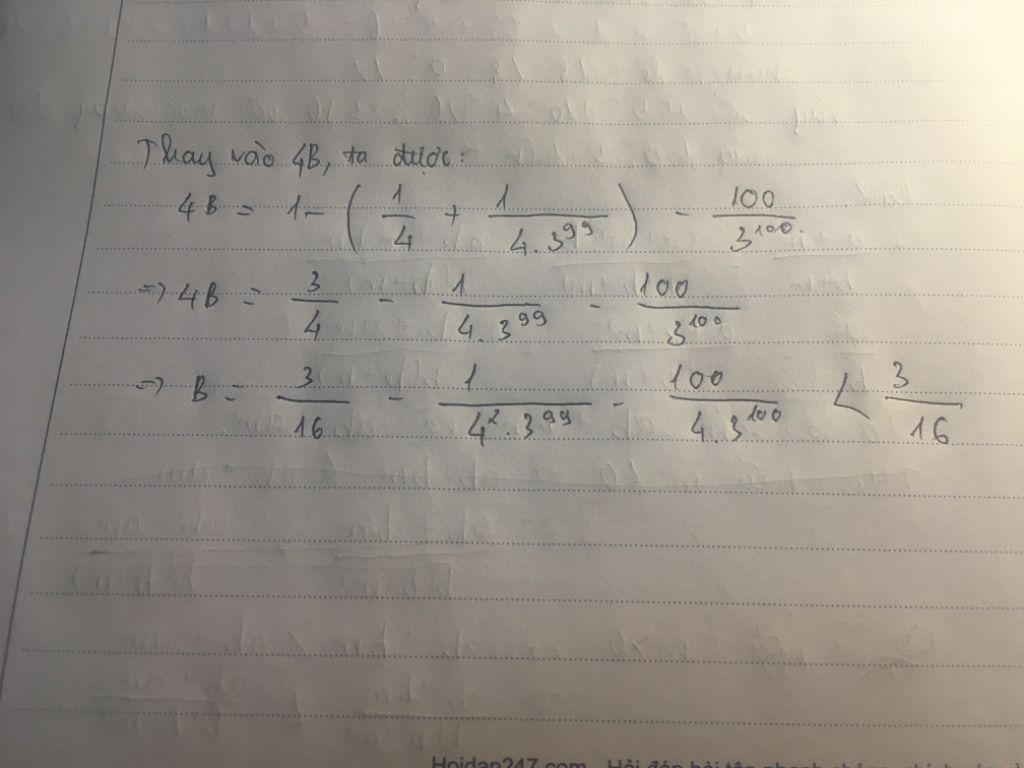 Thay vào 4B, ta được:
4B = 1 - ( 1/4 + 1/(4.3^99) ) - 100/3^100.
=> 4B = 3/4 - 1/(4.3^99) - 100/3^100
=> B = 3/16 - 1/(4^2.3^99) - 100/(4.3^100) < 3/16
Hoidap247.com - Hỏi đáp bài tập nhanh chóng, chính xác